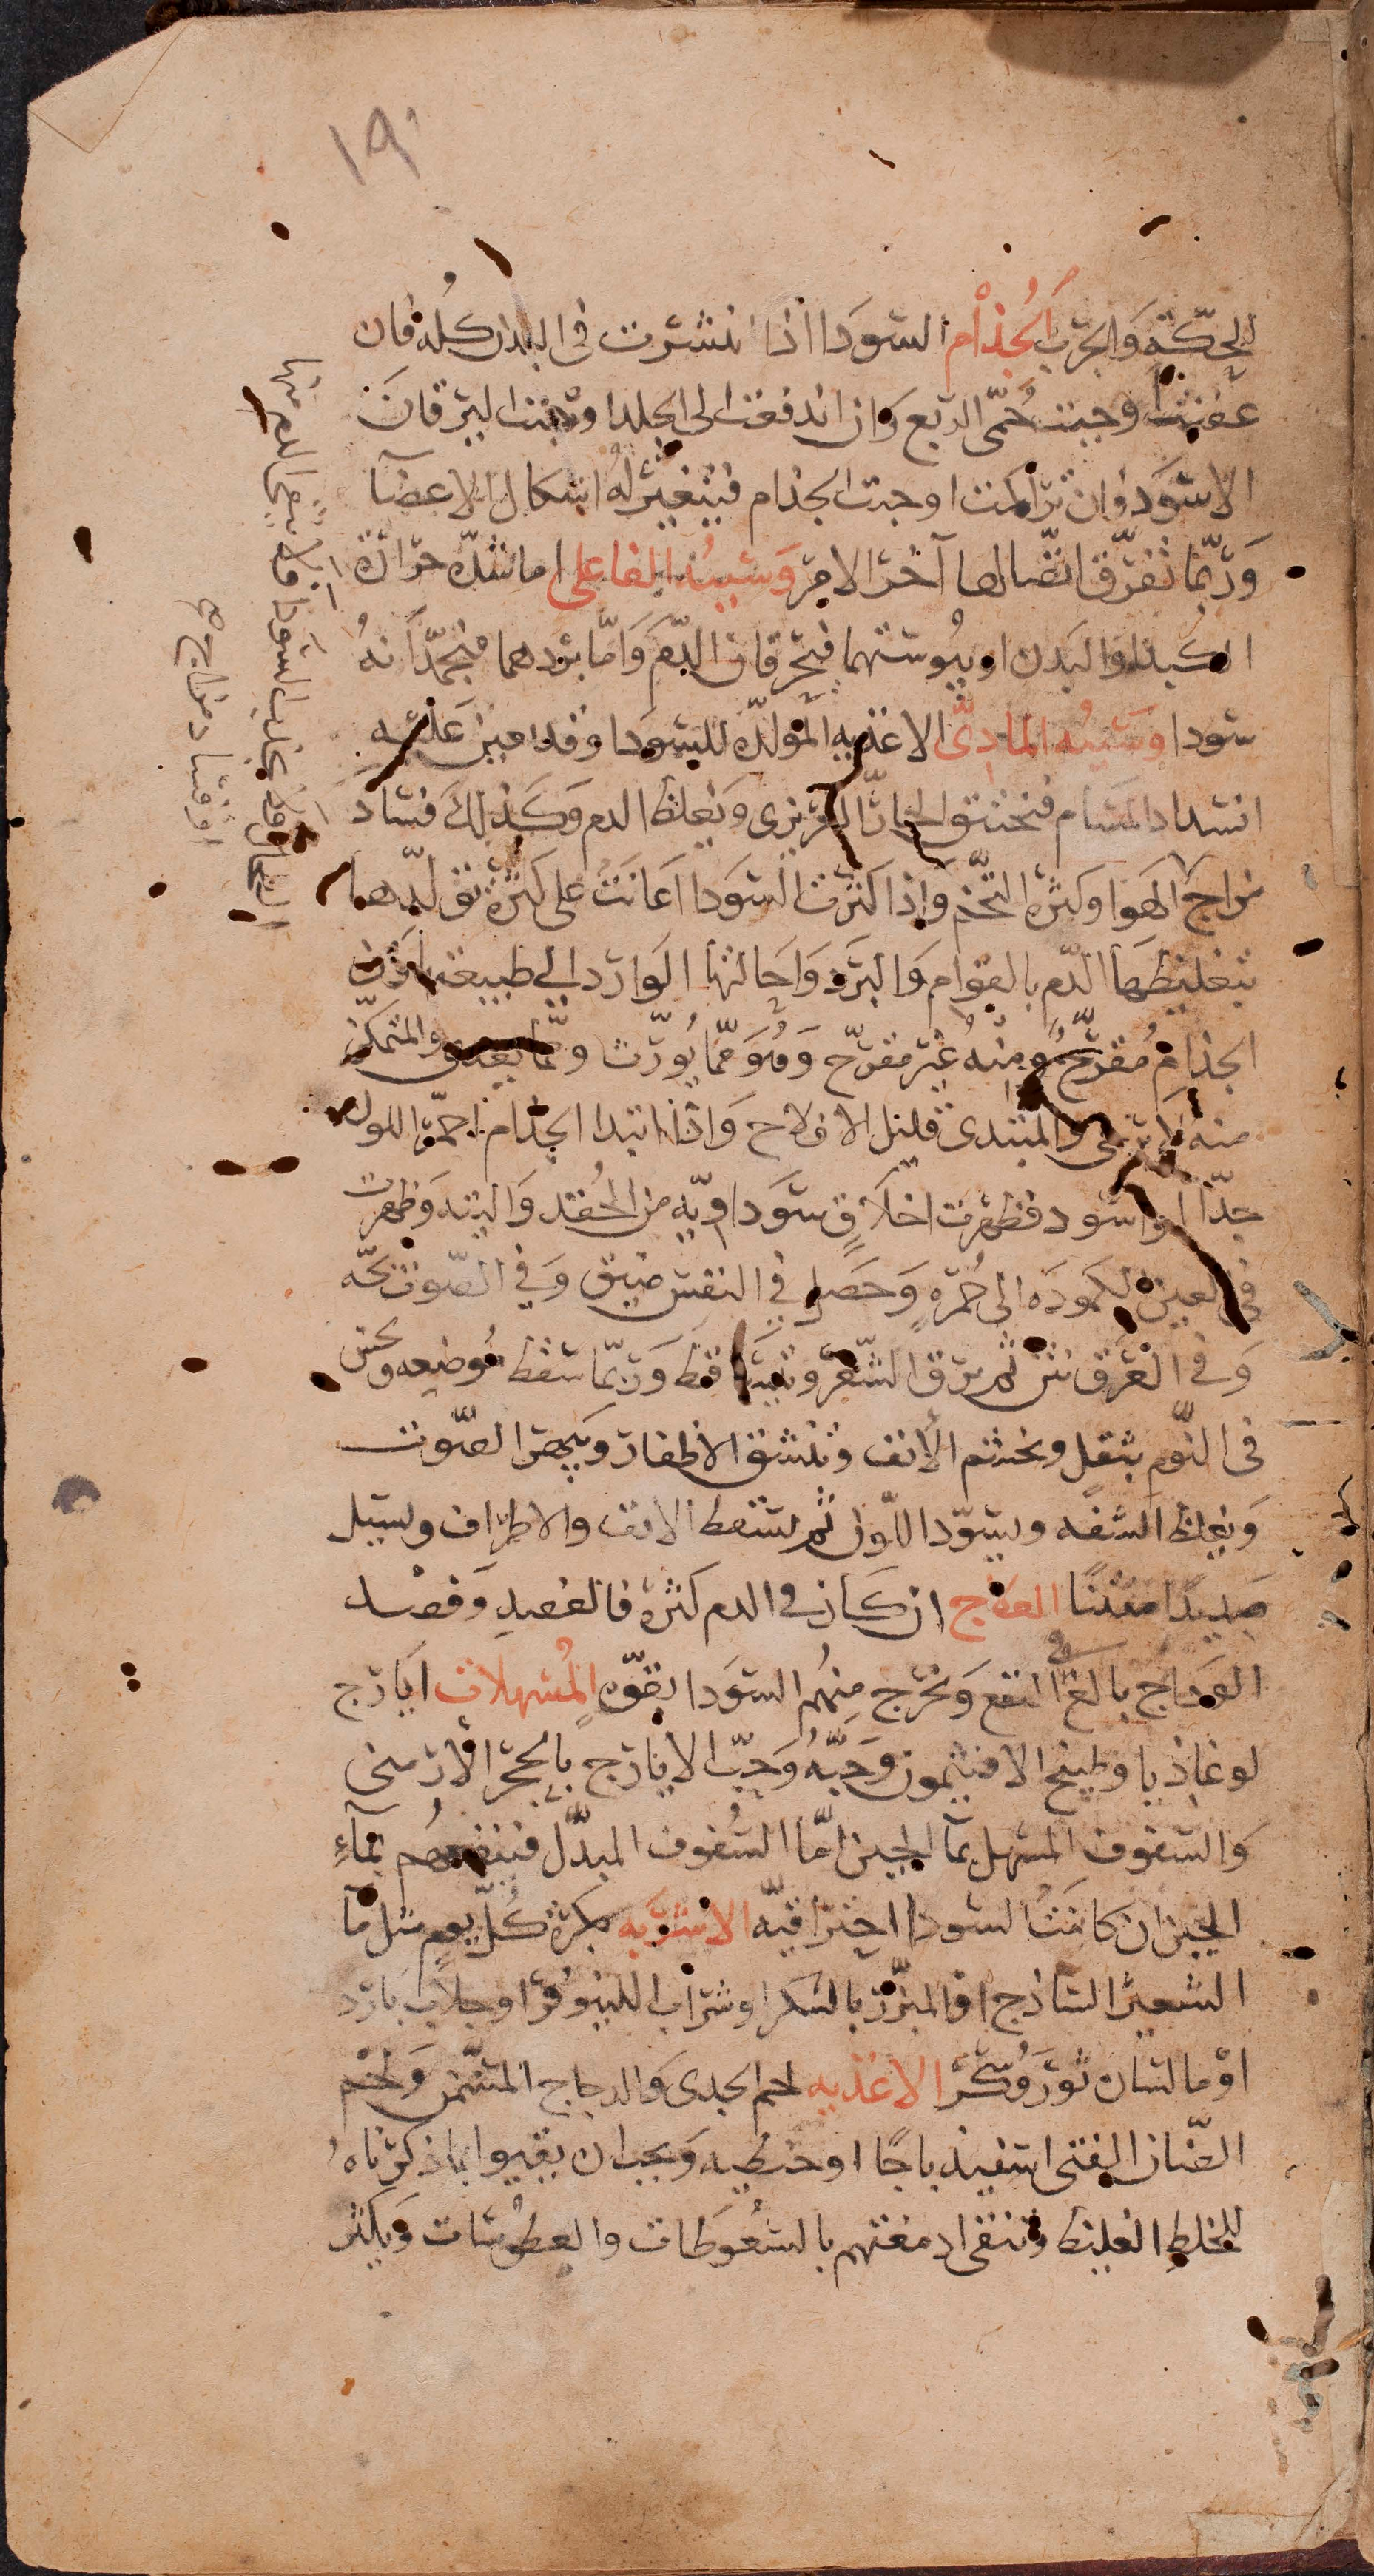 ١٩٠
للحكّة وَالجرَب الجُذام السّودا اذا انتشرت فى البدن كُله فان
عفنت اوجبت حُمّى الرّبع وَان اندفعت الى الجلد اوجبت اليرقانَ
الاسوَد وان تراكمت اوجبت الجذام فيتغيّر لهُ اشكال الاعضآ
وَربّما تفرّق اتّصالها آخر الامر وَسَببُه الفاعلى اما شدّه حرارة
الكبد اوالبَدن او يبُوستهما فيحرقان الدّم وَامّا بردهما فيجمّدانهُ
سودا وسَببُه المادىّ الاغذيه المولّده للسودا وقد يعين عَليه
انسداد المسَام فيختنق الحارّ الغريزى وَيغلظ الدم وَكذلكَ فسَاد
مزاج الهَوا وكثره التّخم وَاذا كثرت السّودا اعَانت على كثرة تولّدها
بتغليظهَا الدّم بالقوام وَالبَرد وَاحالتها الوَارد الى طبيعتها ومن
الجذام مُقرّحٌ ومنهُ غير مقرّح وَهُوَ ممّا يورّث وممّا يعدى والمتمكّن
منه لا يرجى والمبتدى قليل الافلاح وَاذا ابتدا الجذام احمّر اللون
جدّا او اسود فظهرت اخلاَقٍ سَوداويّه من الحُقد وَالتيه وَظهرت
فى العين كموده الى حُمرةٍ وَحَصل فى النفس ضيق وَفى الصّوت بحّه
وَفى العَرق نتن ثم يرق الشّعر ويتسَاقط وَربّما سقط موُضعه ويحسّ
فى النّوم بثقل ويخشم الأنف وتتشقق الاظفار ويجهر الصّوت
وَيغلظ الشفه ويسوّد اللّون ثم يسقط الانف والاطراف ويسيل
صَديدًا منتنًا العلاج ان كان فى الدم كثرة فالفصد وَفصد
الودَاج بالغ فى النفع وَتخرج منهُم السّودا بقوّه المُسهلات ايارج
لوغاذيا وطبيخ الافتيمون وَحَبّهُ وَحَبّ الايارج بالحجر الأرمنى
وَالسفوف المسهل بمآ الجبن امّا السُفوف المبدّل فينفعهُم بمآءِ
الجبن ان كانت السودا احتراقيّه الاشربه بكرة كُلّ يومٍ مثل مآ
الشعير السّاذج او المبزّر بالسُكر او شراب اللينوُفر او جلاّب بارد
اوْ مآ لسَان ثور وَسُكّر الاغذيه لحم الجدى وَالدجاج المسّمن وَلحْم
الضّان الفتى اسفيذباجًا او حنطيه وَيجب ان يقيوا بما ذكرناهُ
للخلط الغليظ وتنقى ادمغتهم بالسّعُوطات والعطوُسَات وَيكثر